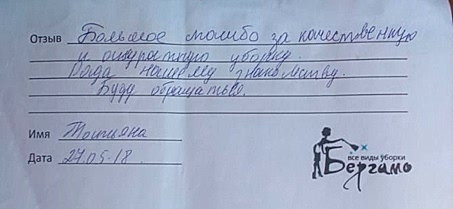 Отзыв Большое спасибо за качественную
и аккуратную уборку.
Рада нашему знакомству.
Буду обращаться.
Имя Татьяна
Дата 27.05.18
все виды уборки
Бергамо